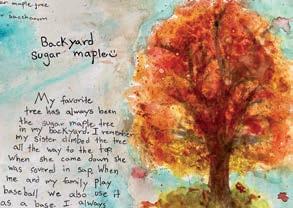 maple tree
saccharum
Backyard
Sugar maple
My favorite
tree has always been
the sugar maple tree
in my backyard. I remember
my sister climbed the tree
all the way to the top
When she came down she
was covered in sap. When
me and my family play
baseball we also use it
as a base. I always